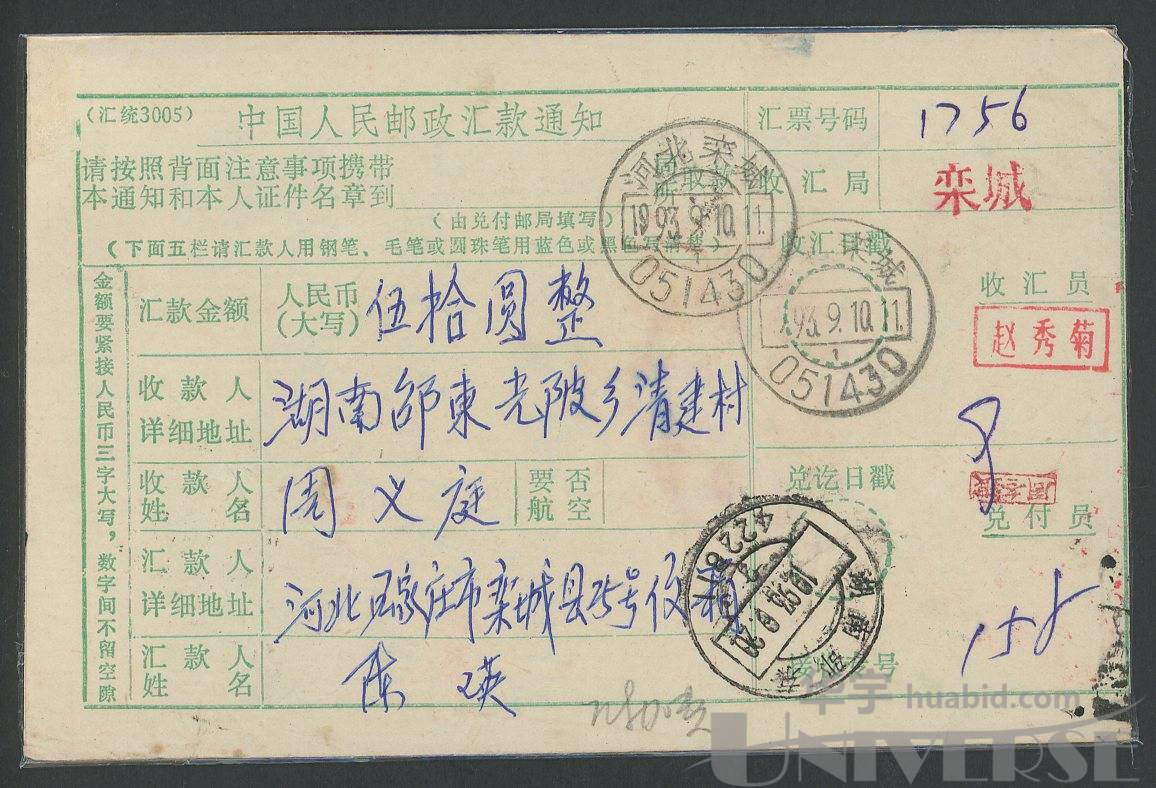 (汇统3005) 中国人民邮政汇款通知
汇票号码 1756
请按照背面注意事项携带
本通知和本人证件名章到
(由兑付邮局填写)
收汇局 栾城
(下面五栏请汇款人用钢笔、毛笔或圆珠笔用蓝色或黑色写清楚)
金额要紧接人民币三字大写，数字间不留空隙
汇款金额 人民币(大写) 伍拾圆整
收款人详细地址 湖南邵東光陂乡清建村
收款人姓名 周义庭 要否航空
汇款人详细地址 河北石家庄市栾城县75号信箱
汇款人姓名 瑛
收汇日戳
收汇员
赵秀菊
兑讫日戳
兑付员
号
158
河北栾城
1993.9.10.11.
1
051430
栾城
1993.9.10.11.
1
051430
湖南
4228
华宇 huabid.com
UNIVERSE